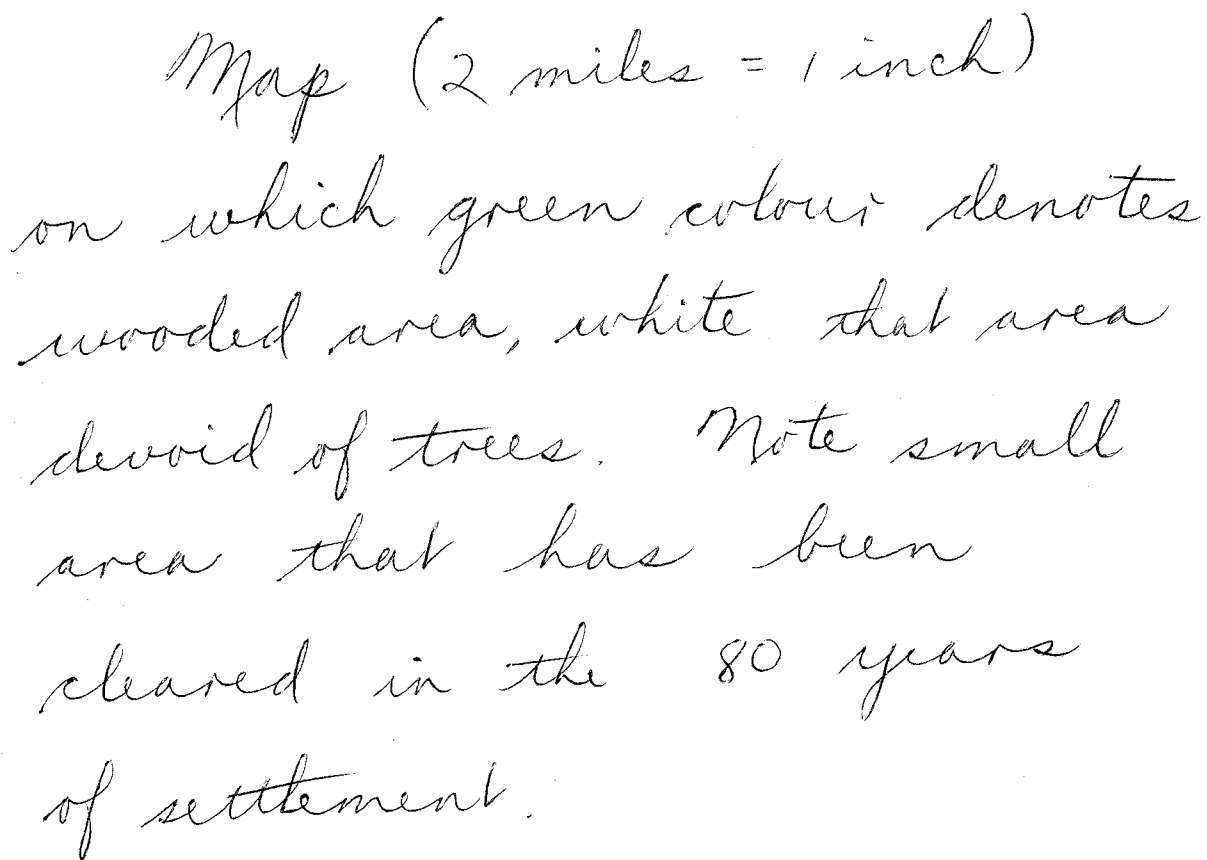 Map (2 miles = 1 inch)
on which green colour denotes
wooded area, white that area
devoid of trees. Note small
area that has been
cleared in the 80 years
of settlement.